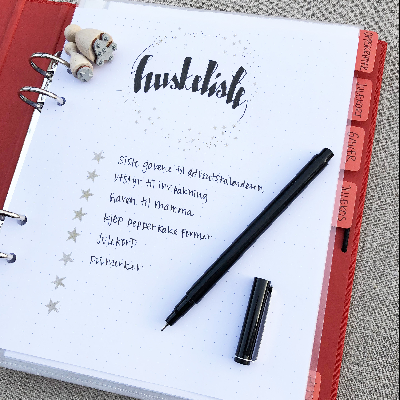 huskelist
Siste gavene til adventskalenderen
Utstyr til innpakning
Gaven til mamma
Kjøp pepperkake former
Julekort
Frimerker
JULEKORT
GAVER